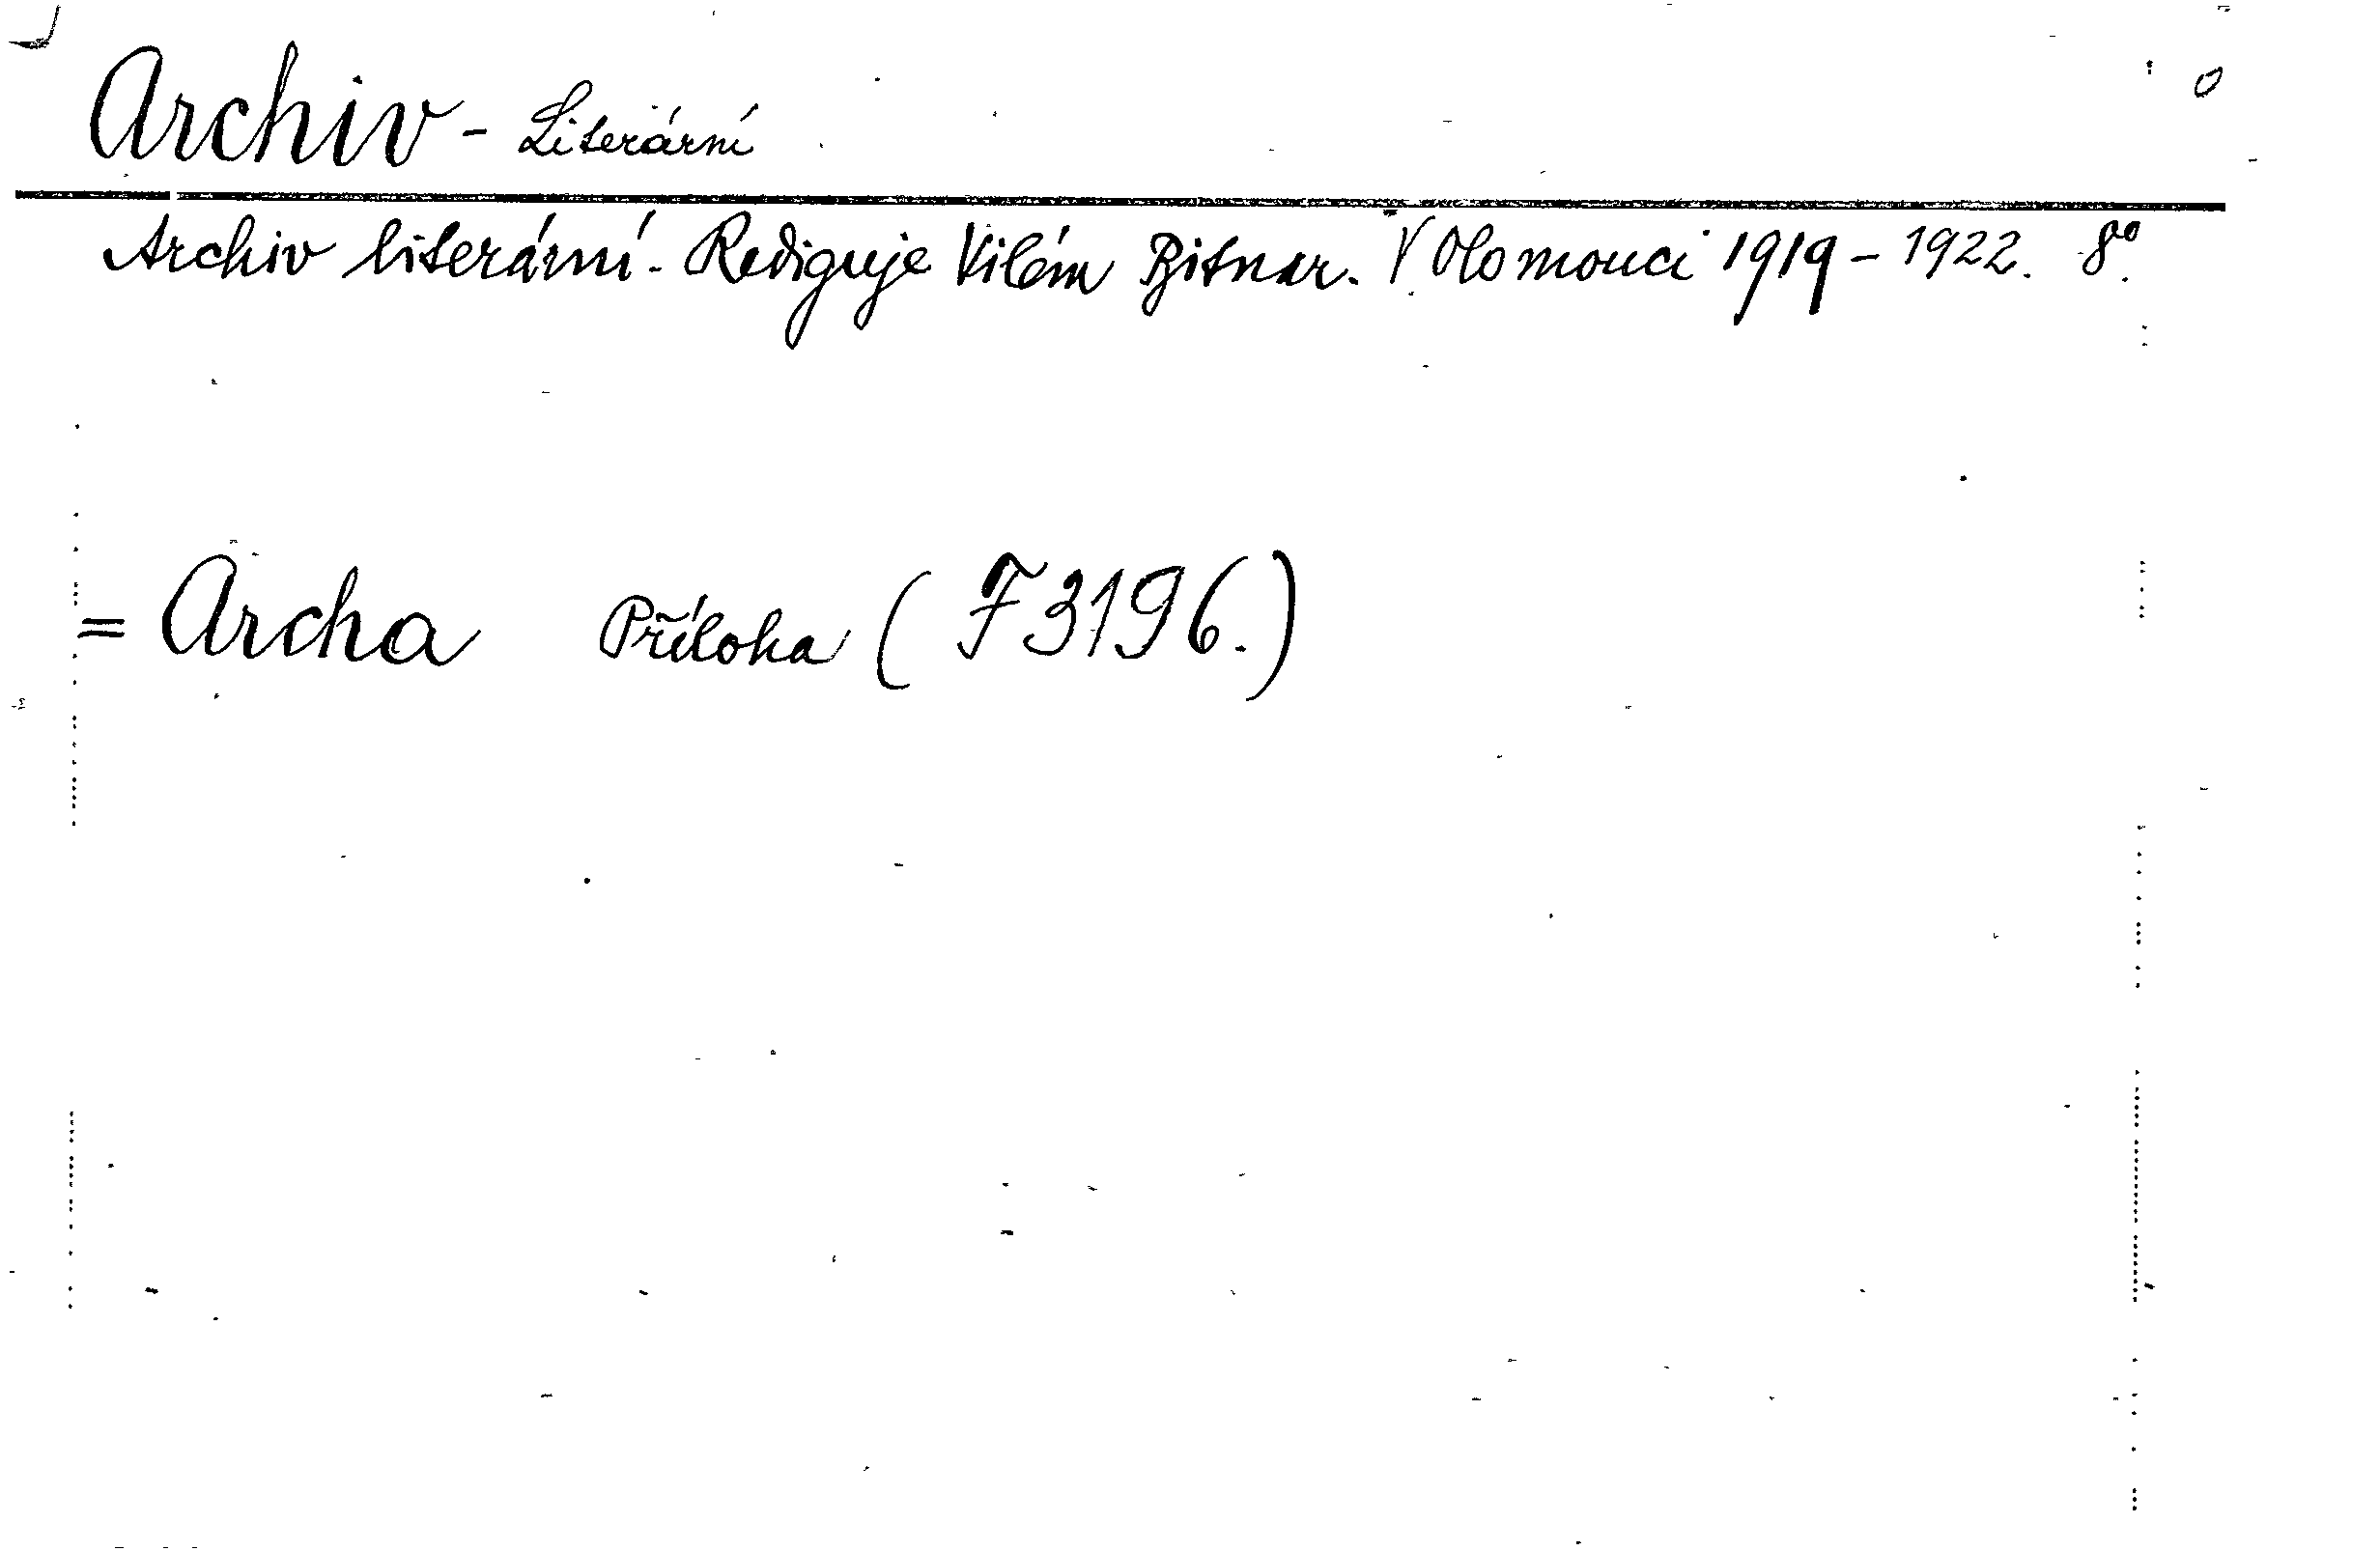 Archiv - Literární
Archiv literární. Rediguje Vilém Bitnar. V Olomouci 1919 - 1922. 8°.
= Archa Příloha (F 3196.)